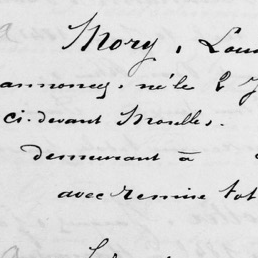 Mory, Lou
annoncy, né le 2 J
ci-devant Moselle.
demeurant à
avec remise tot